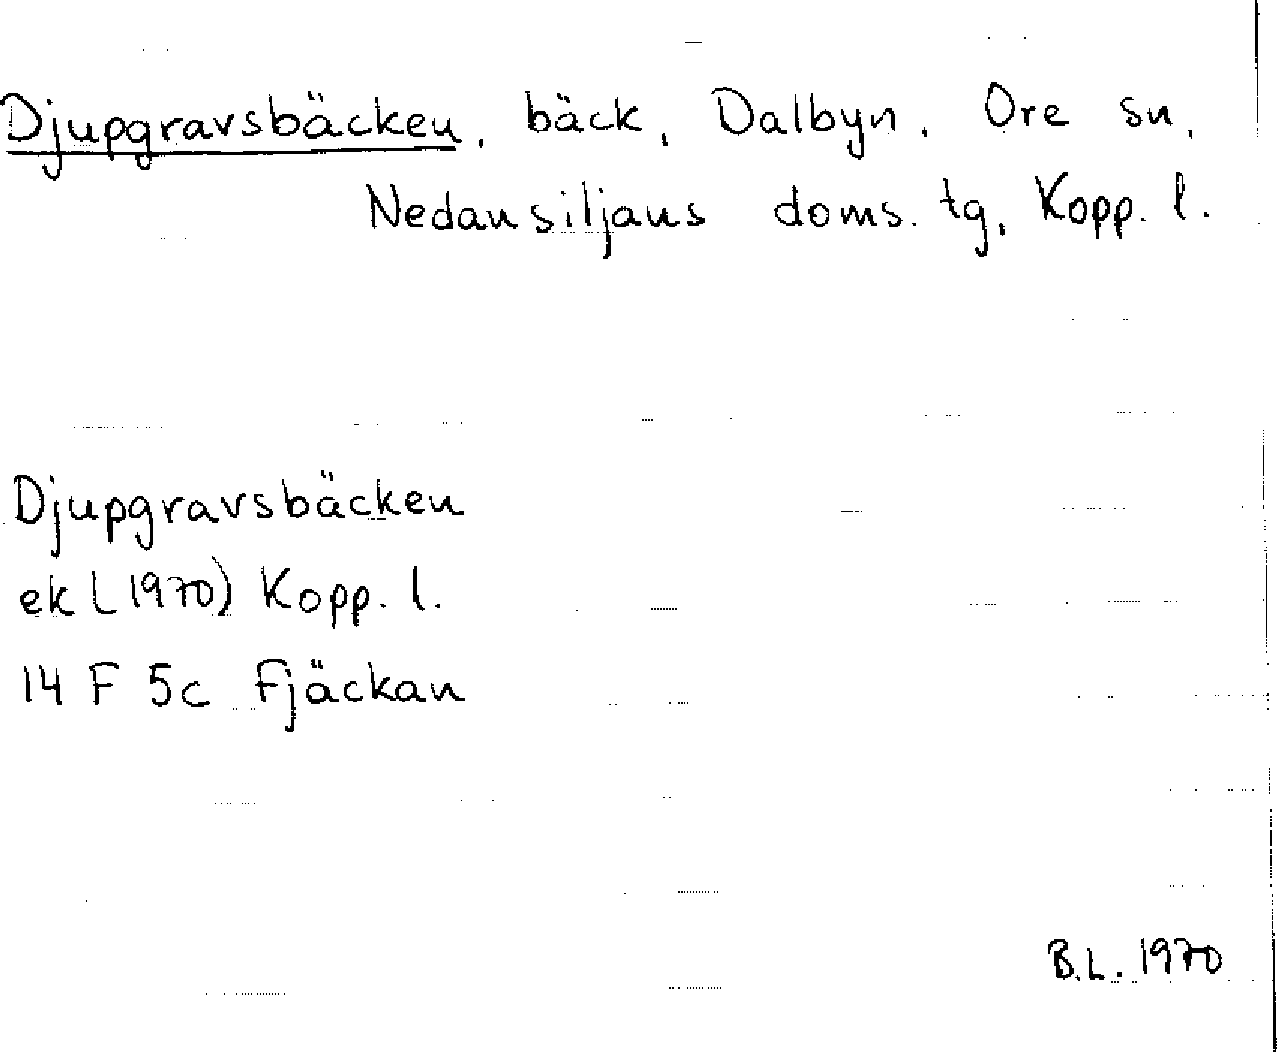 Djupgravsbäcken, bäck, Dalbyn, Ore sn,
Nedansiljans doms. tg, Kopp. l.
Djupgravsbäcken
ek (1970) Kopp. l.
14 F 5c Fjäckan
B.L. 1970